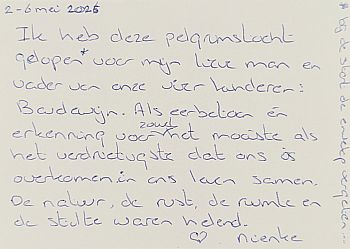 2-6 mei 2025
Ik heb deze pelgrimstocht
gelopen* voor mijn lieve man en
vader van onze vier kinderen:
Boudewijn. Als eerbetoon én
erkenning zowel voor het mooiste als
het verdrietigste dat ons is
overkomen in ons leven samen.
De natuur, de rust, de ruimte en
de stilte waren helend.
♡ Nienke
* bij de start de